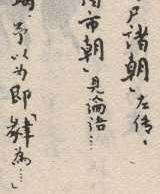 尸诸朝」左传、
市朝」見論语…
予以为即「肆為…」